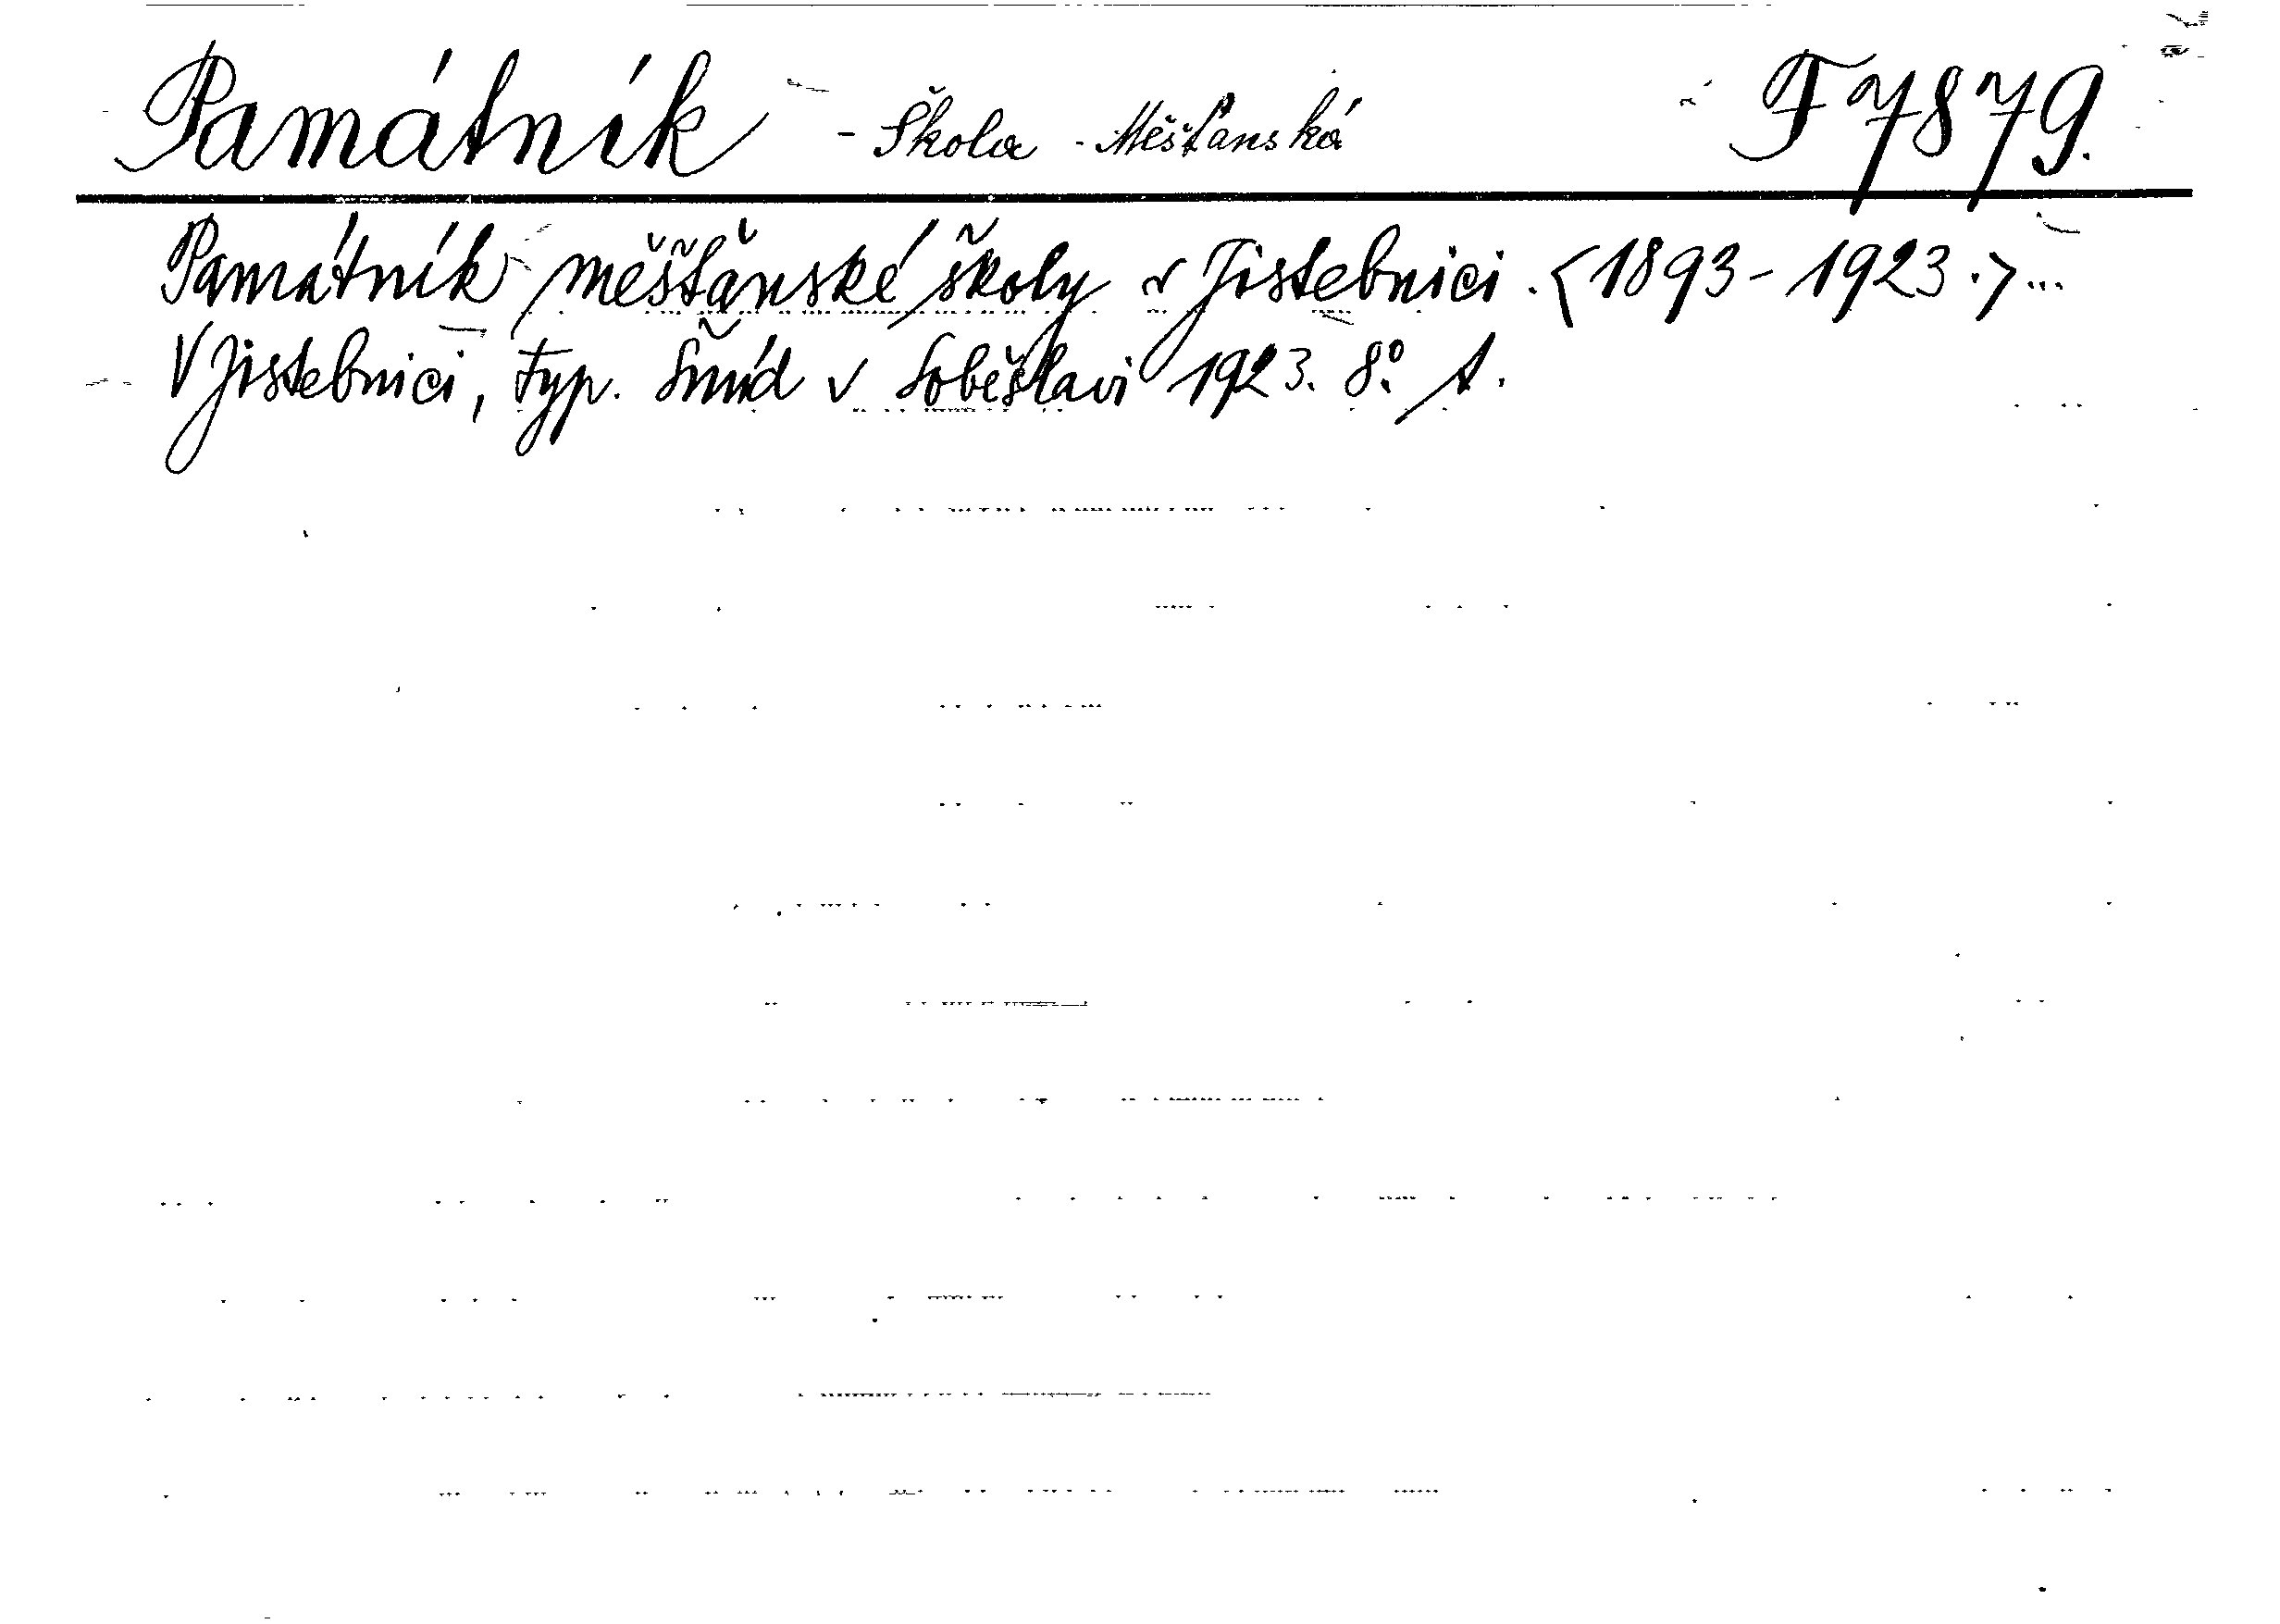 Památník - Škola - Měšťanská F 7879.
Památník měšťanské školy v Jistebnici. <1893-1923.>...
V Jistebnici, typ. Šmíd v Soběslavi 1923. 8º.